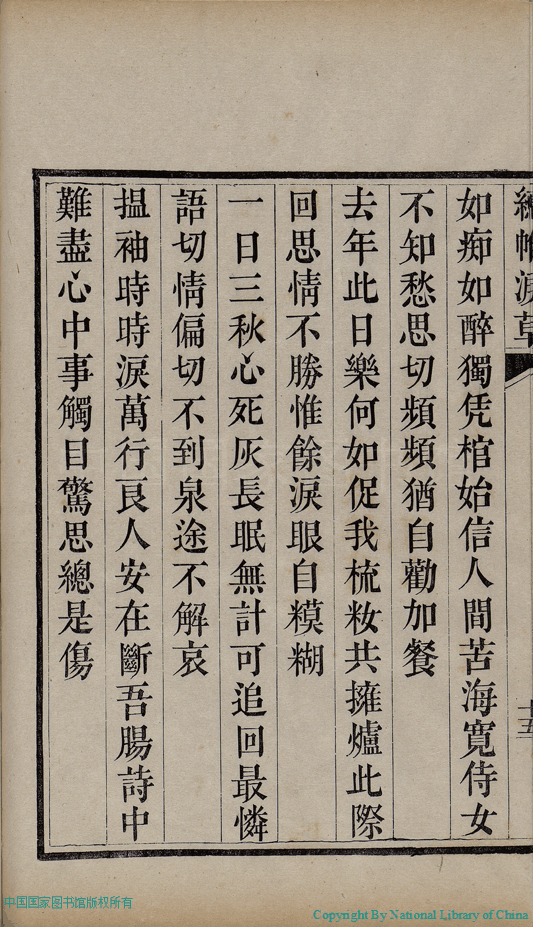 十五
如痴如醉獨凭棺始信人間苦海寬侍女
不知愁思切頻頻猶自勸加餐
去年此日樂何如促我梳妝共擁爐此際
回思情不勝惟餘淚眼自糢糊
一日三秋心死灰長眠無計可追回最憐
語切情偏切不到泉途不解哀
揾袖時時淚萬行良人安在斷吾腸詩中
難盡心中事觸目驚思總是傷
中国国家图书馆版权所有
Copyright By National Library of China